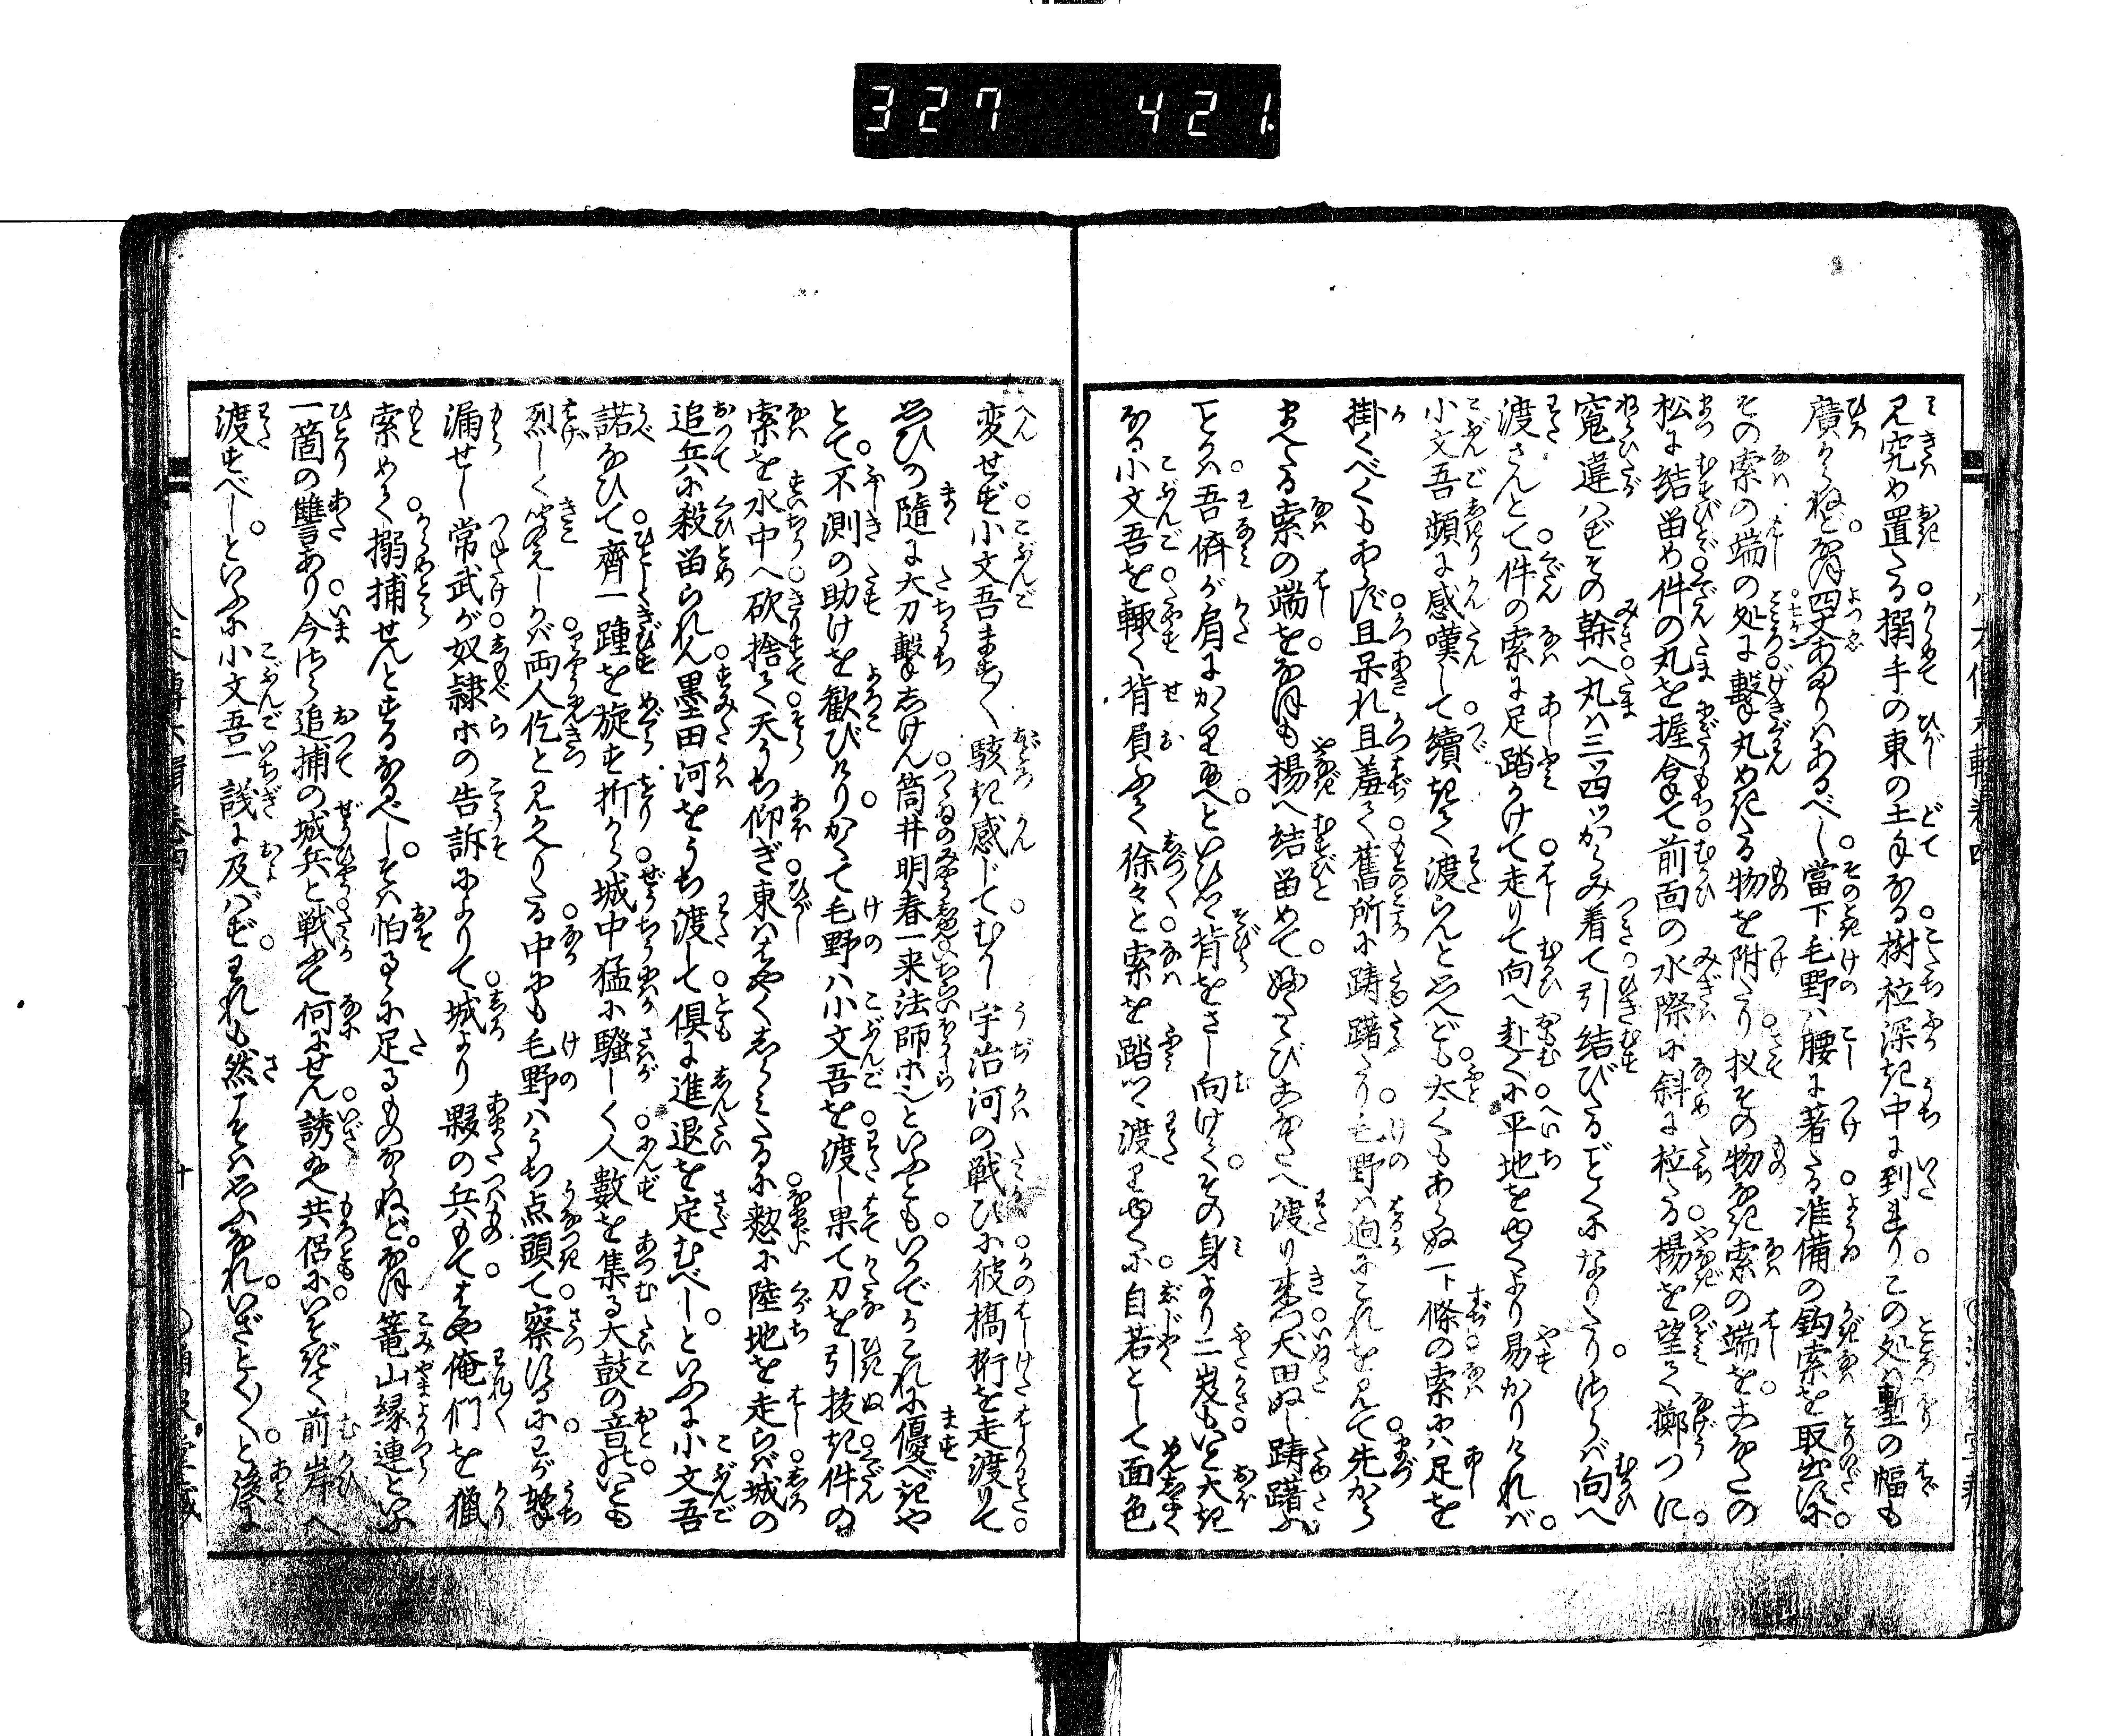 327 421
見究め置たる搦手の東の土手なる樹柆深き中に到まり。この処は塹の幅も
廣からねど。なほ四丈あまりはあるべし。當下毛野は腰に著たる准備の鈎索を取出すに。
その索の端の処に撃丸めきたる物を附たり。扠その物なき索の端を。こなたの
松に結留め件の丸を握持て前面の水際に斜に柆たる楊を望て擲つに。
寃違はずその幹へ丸は三四ツからみ着て引結びたるごとくになりたり。さらば向へ
渡さんとて件の索に足踏かけて走りて向へ赴くに平地をゆくより易かりければ。
小文吾頻に感嘆して續きて渡らんと思へども太くもあらぬ一ト條の索には足を
掛くべくもあらず且呆れ且羞て舊所に躊躇たり。毛野は逈にこれを見て先から
まへたる索の端を。なほも楊へ結留めて。ふたゝびこなたへ渡り来つ犬田ぬし躊躇ふ
ことかは。吾儕が肩にかゝり給へ。といひつゝ背をさし向けて。その身より二岌もいと大き
なる小文吾を輙く背負ふて徐々と索を踏つゝ渡りゆくに。自若として面色
変せず小文吾ますます駭き感じてむかし宇治河の戦ひに彼橋桁を走渡りて。
思ひの隨に大刀撃しけん筒井明春一来法師ホといふとも。いかでかこれに優べきや
とて。不測の助けを歓びけり。かくて毛野は小文吾を渡し果て刀を引抜き件の
索を水中へ砍捨て天うち仰ぎ東ははやくしらみたるに憖に陸地を走らば城の
追兵に殺留られん墨田河をうち渡して倶に進退を定むべし。といふに小文吾
諾なひて齊一踵を旋す折から城中猛に騒しく人數を集る大鼓の音いとも
烈しく聞えしかば両人佗と見かへりたる中にも毛野はうち点頭て察するに。わが撃
漏せし常武が奴隷ホの告訴によりて城より夥の兵もてはや俺們を獵
索めて搦捕せんとするなるべし。そは怕るゝに足るものならねど。なほ篭山縁連といふ
一箇の讐あり今さら追捕の城兵と戦ふて何にせん誘給へ共侶にいそぎて前岸へ
渡すべし。といふに小文吾一議に及ばず。われも然こそは思ふなれ。いざとくとく。と後に